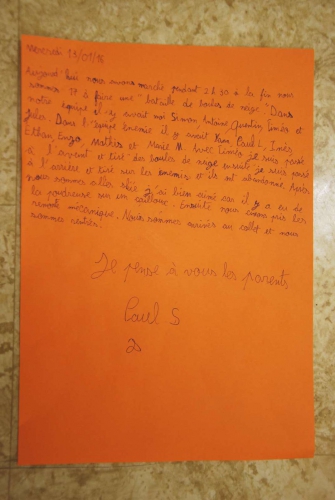 Mercredi 13/01/16
Aujourd'hui nous avons marché pendant 2h30 à la fin nous
sommes à faire une "bataille de boules de neige" Dans
notre équipe il y avait moi Simon Antoine, Quentin, Timéo et
Jules. Dans l'équipe énemie il y avait Paul L, Inès
Ethan, Enzo, Mathis et Marie M. Avec Timéo je suis passé
à l'avant et tiré des boules de neige ensuite je suis passé
à l'arrière et tiré sur les énemies et ils ont abandonné. Après
nous sommes allés skié j'ai bien aimé car il y a eu de
la poudreuse sur un Ensuite nous avons pris les
remonté mécanique. Nous sommes arrivés au collet et nous
sommes rentrés!
Je pense à vous les parents
Paul S